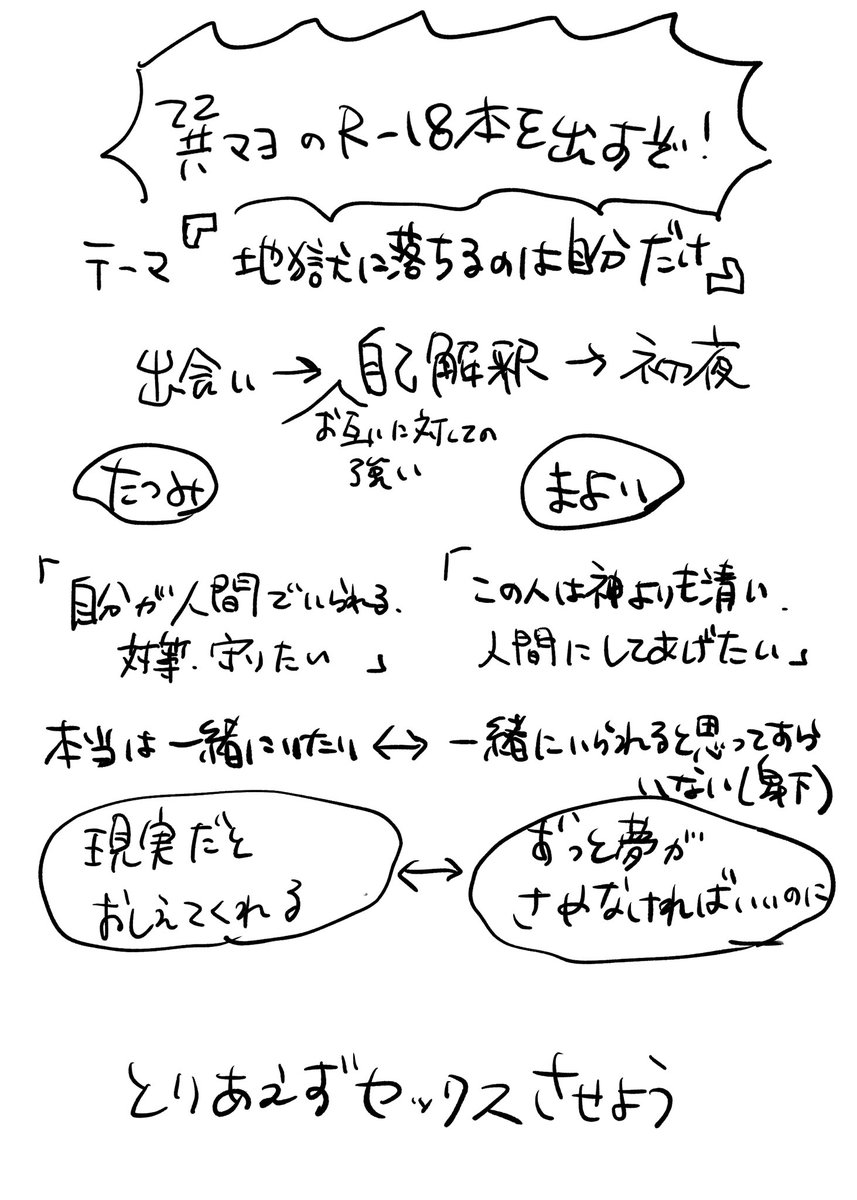 巽マヨのR-18本を出すぞ!
テーマ『地獄に落ちるのは自分だけ』
出会い→自己解釈→初夜
お互いに対しての
強い
たつみ
まよい
「自分が人間でいられる.
対等.守りたい」
「この人は神よりも清い.
人間にしてあげたい」
本当は一緒にいたい↔一緒にいられると思ってすら
いない(身下)
現実だと
おしえてくれる
↔
ずっと夢が
さめなければいいのに
とりあえずセックスさせよう